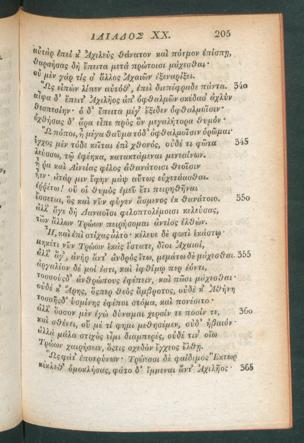 ΙΛΙΑΔΟΣ XX. 205
αὐτὰρ ἐπεί κ' Ἀχιλεὺς θάνατον καὶ πότμον ἐπίσπῃ,
θαρσήσας δὴ ἔπειτα μετὰ πρώτοισι μάχεσθαι·
οὐ μὲν γάρ τίς σ' ἄλλος Ἀχαιῶν ἐξεναρίξει.
Ὣς εἰπὼν λίπεν αὐτόθ', ἐπεὶ διεπέφραδε πάντα. 340
αἶψα δ' ἔπειτ' Ἀχιλῆος ἀπ' ὀφθαλμῶν σκέδασ' ἀχλὺν
θεσπεσίην· ὁ δ' ἔπειτα μέγ' ἔξιδεν ὀφθαλμοῖσιν·
ὀχθήσας δ' ἄρα εἶπε πρὸς ὃν μεγαλήτορα θυμόν·
Ὢ πόποι, ἦ μέγα θαῦμα τόδ' ὀφθαλμοῖσιν ὁρῶμαι·
ἔγχος μὲν τόδε κεῖται ἐπὶ χθονός, οὐδέ τι φῶτα 345
λεύσσω, τῷ ἐφέηκα, κατακτάμεναι μενεαίνων.
ἦ ῥα καὶ Αἰνείας φίλος ἀθανάτοισι θεοῖσιν
ἦεν· ἀτάρ μιν ἔφην μὰψ αὔτως εὐχετάασθαι.
ἐρρέτω! οὔ οἱ θυμὸς ἐμεῦ ἔτι πειρηθῆναι
ἔσσεται, ὃς καὶ νῦν φύγεν ἄσμενος ἐκ θανάτοιο. 350
ἀλλ' ἄγε δὴ Δαναοῖσι φιλοπτολέμοισι κελεύσας,
τῶν ἄλλων Τρώων πειρήσομαι ἀντίος ἐλθών.
Ἦ, καὶ ἐπὶ στίχας ἆλτο· κέλευε δὲ φωτὶ ἑκάστῳ·
μηκέτι νῦν Τρώων ἑκὰς ἕστατε, δῖοι Ἀχαιοί,
ἀλλ' ἄγ', ἀνὴρ ἄντ' ἀνδρὸς ἴτω, μεμάτω δὲ μάχεσθαι. 355
ἀργαλέον δέ μοί ἐστι, καὶ ἰφθίμῳ περ ἐόντι,
τοσσούσδ' ἀνθρώπους ἐφέπειν, καὶ πᾶσι μάχεσθαι·
οὐδέ κ' Ἄρης, ὅσπερ θεὸς ἄμβροτος, οὐδέ κ' Ἀθήνη
τοσσῆσδ' ὑσμίνης ἐφέποι στόμα, καὶ πονέοιτο·
ἀλλ' ὅσσον μὲν ἐγὼ δύναμαι χερσίν τε ποσίν τε, 360
καὶ σθένει, οὔ μέ τί φημι μεθησέμεν, οὐδ' ἠβαιόν·
ἀλλὰ μάλα στιχὸς εἶμι διαμπερές, οὐδέ τιν' οἴω
Τρώων χαιρήσειν, ὅστις σχεδὸν ἔγχεος ἔλθῃ.
Ὣς φάτ' ἐποτρύνων· Τρώεσσι δὲ φαίδιμος Ἕκτωρ
κέκλεθ' ὁμοκλήσας, φάτο δ' ἴμμεναι ἄντ' Ἀχιλῆος· 365